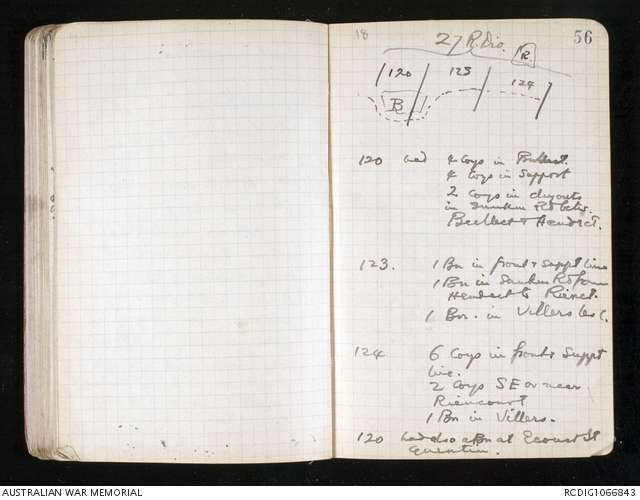 18
56
27 R. Div.
R
120 123 124
B
120 had 4 Coys in Bullect.
4 Coys in Support
2 Coys in dugouts
in Sunken Rd betw.
Bullect & Hendect.
123. 1 Bn in front & suppt line
1 Bn in Sunken Rd from
Hendect to Rienct.
1 Bn. in Villers les C.
124 6 Coys in front & Suppt
line.
2 Coys SE or near
Riencourt
1 Bn in Villers.
120 had also a Bn at Ecoust St
Quentin.
AUSTRALIAN WAR MEMORIAL
RCDIG1066843